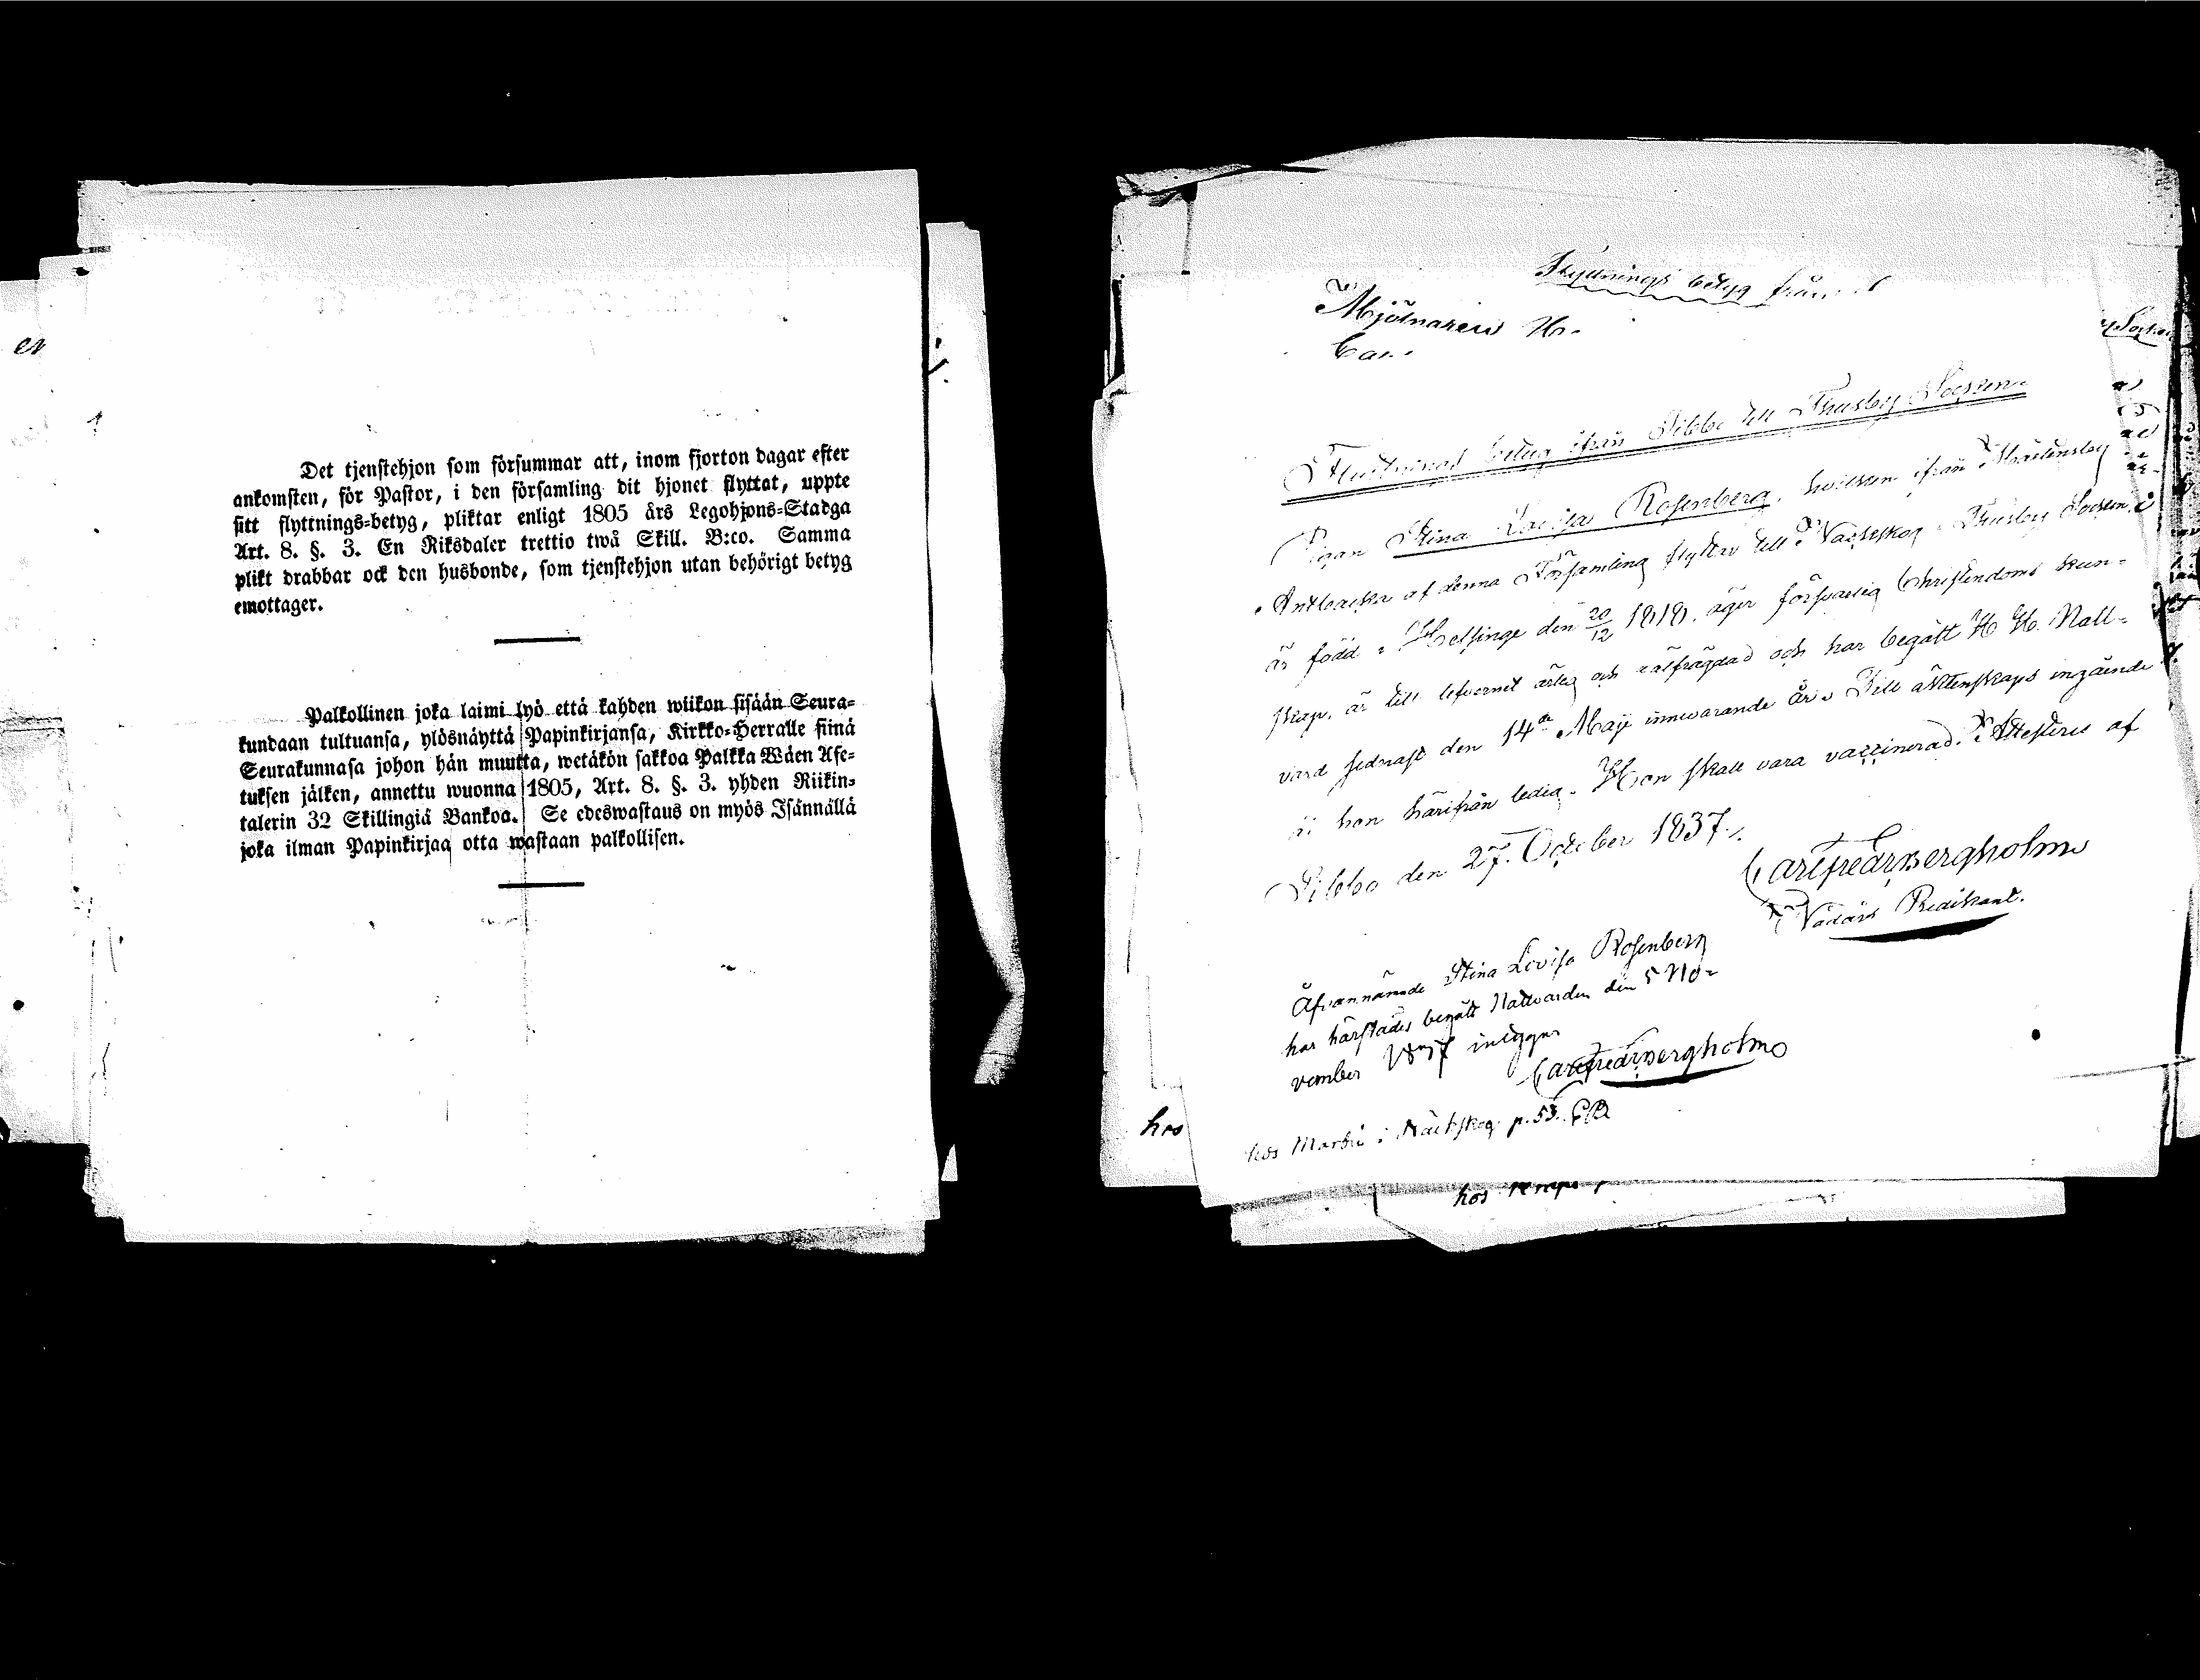 Det tjenstehjon som försummar att, inom fjorton dagar efter
ankomsten, för Pastor, i den församling dit hjonet flyttat, uppte
sitt flyttnings=betyg, pliktar enligt 1805 års Legohjons=Stadga
Art. 8. §. 3. En Riksdaler trettio twå Skill. B:co. Samma
plikt drabbar ock den husbonde, som tjenstehjon utan behörigt betyg
emottager.
Palkollinen joka laimi lyö että kahden wiikon sisään Seura=
kundaan tultuansa, ylösnäyttä Papinkirjansa, Kirkko=Herralle siinä
Seurakunnasa johon hän muutta, wetäkön sakkoa Palkka Wäen Ase=
tuksen jälken, annettu wuonna 1805, Art. 8. §. 3. yhden Riikin=
talerin 32 Skillingiä Bankoa. Se edeswastaus on myös Isännällä
joka ilman Papinkirjaa otta wastaan palkollisen.
Flyttnings betyg från
Mjölnaren
Flyttnings betyg ifrån Sibbo till Thusby Socken.
Pigan Stina Lovisa Rosenberg, hvilken ifrån Mårtensby
Antbacka af denna Församling flyttar till Thusby Socken,
är född i Helsinge den 20/12 1818, äger försvarlig Christendoms kun=
skap, är till lefvernet ärlig och välfrägdad och har begått H. H. Natt=
vard sednast den 14de Maji innevarande år. Till äktenskaps ingående
är hon härifrån ledig. Hon skall vara vaccinerad. Attesteres af
Sibbo den 27. October 1837.
Carl Fredr Bergholm
Vådårs Predikant.
Ofvannämnde Stina Lovisa Rosenberg
har härstädes begått Nattvarden den 5 No=
vember 1837 intygar
Carl Fredr Bergholm
hos Martis i Näckskog p. 53.
hos
hos